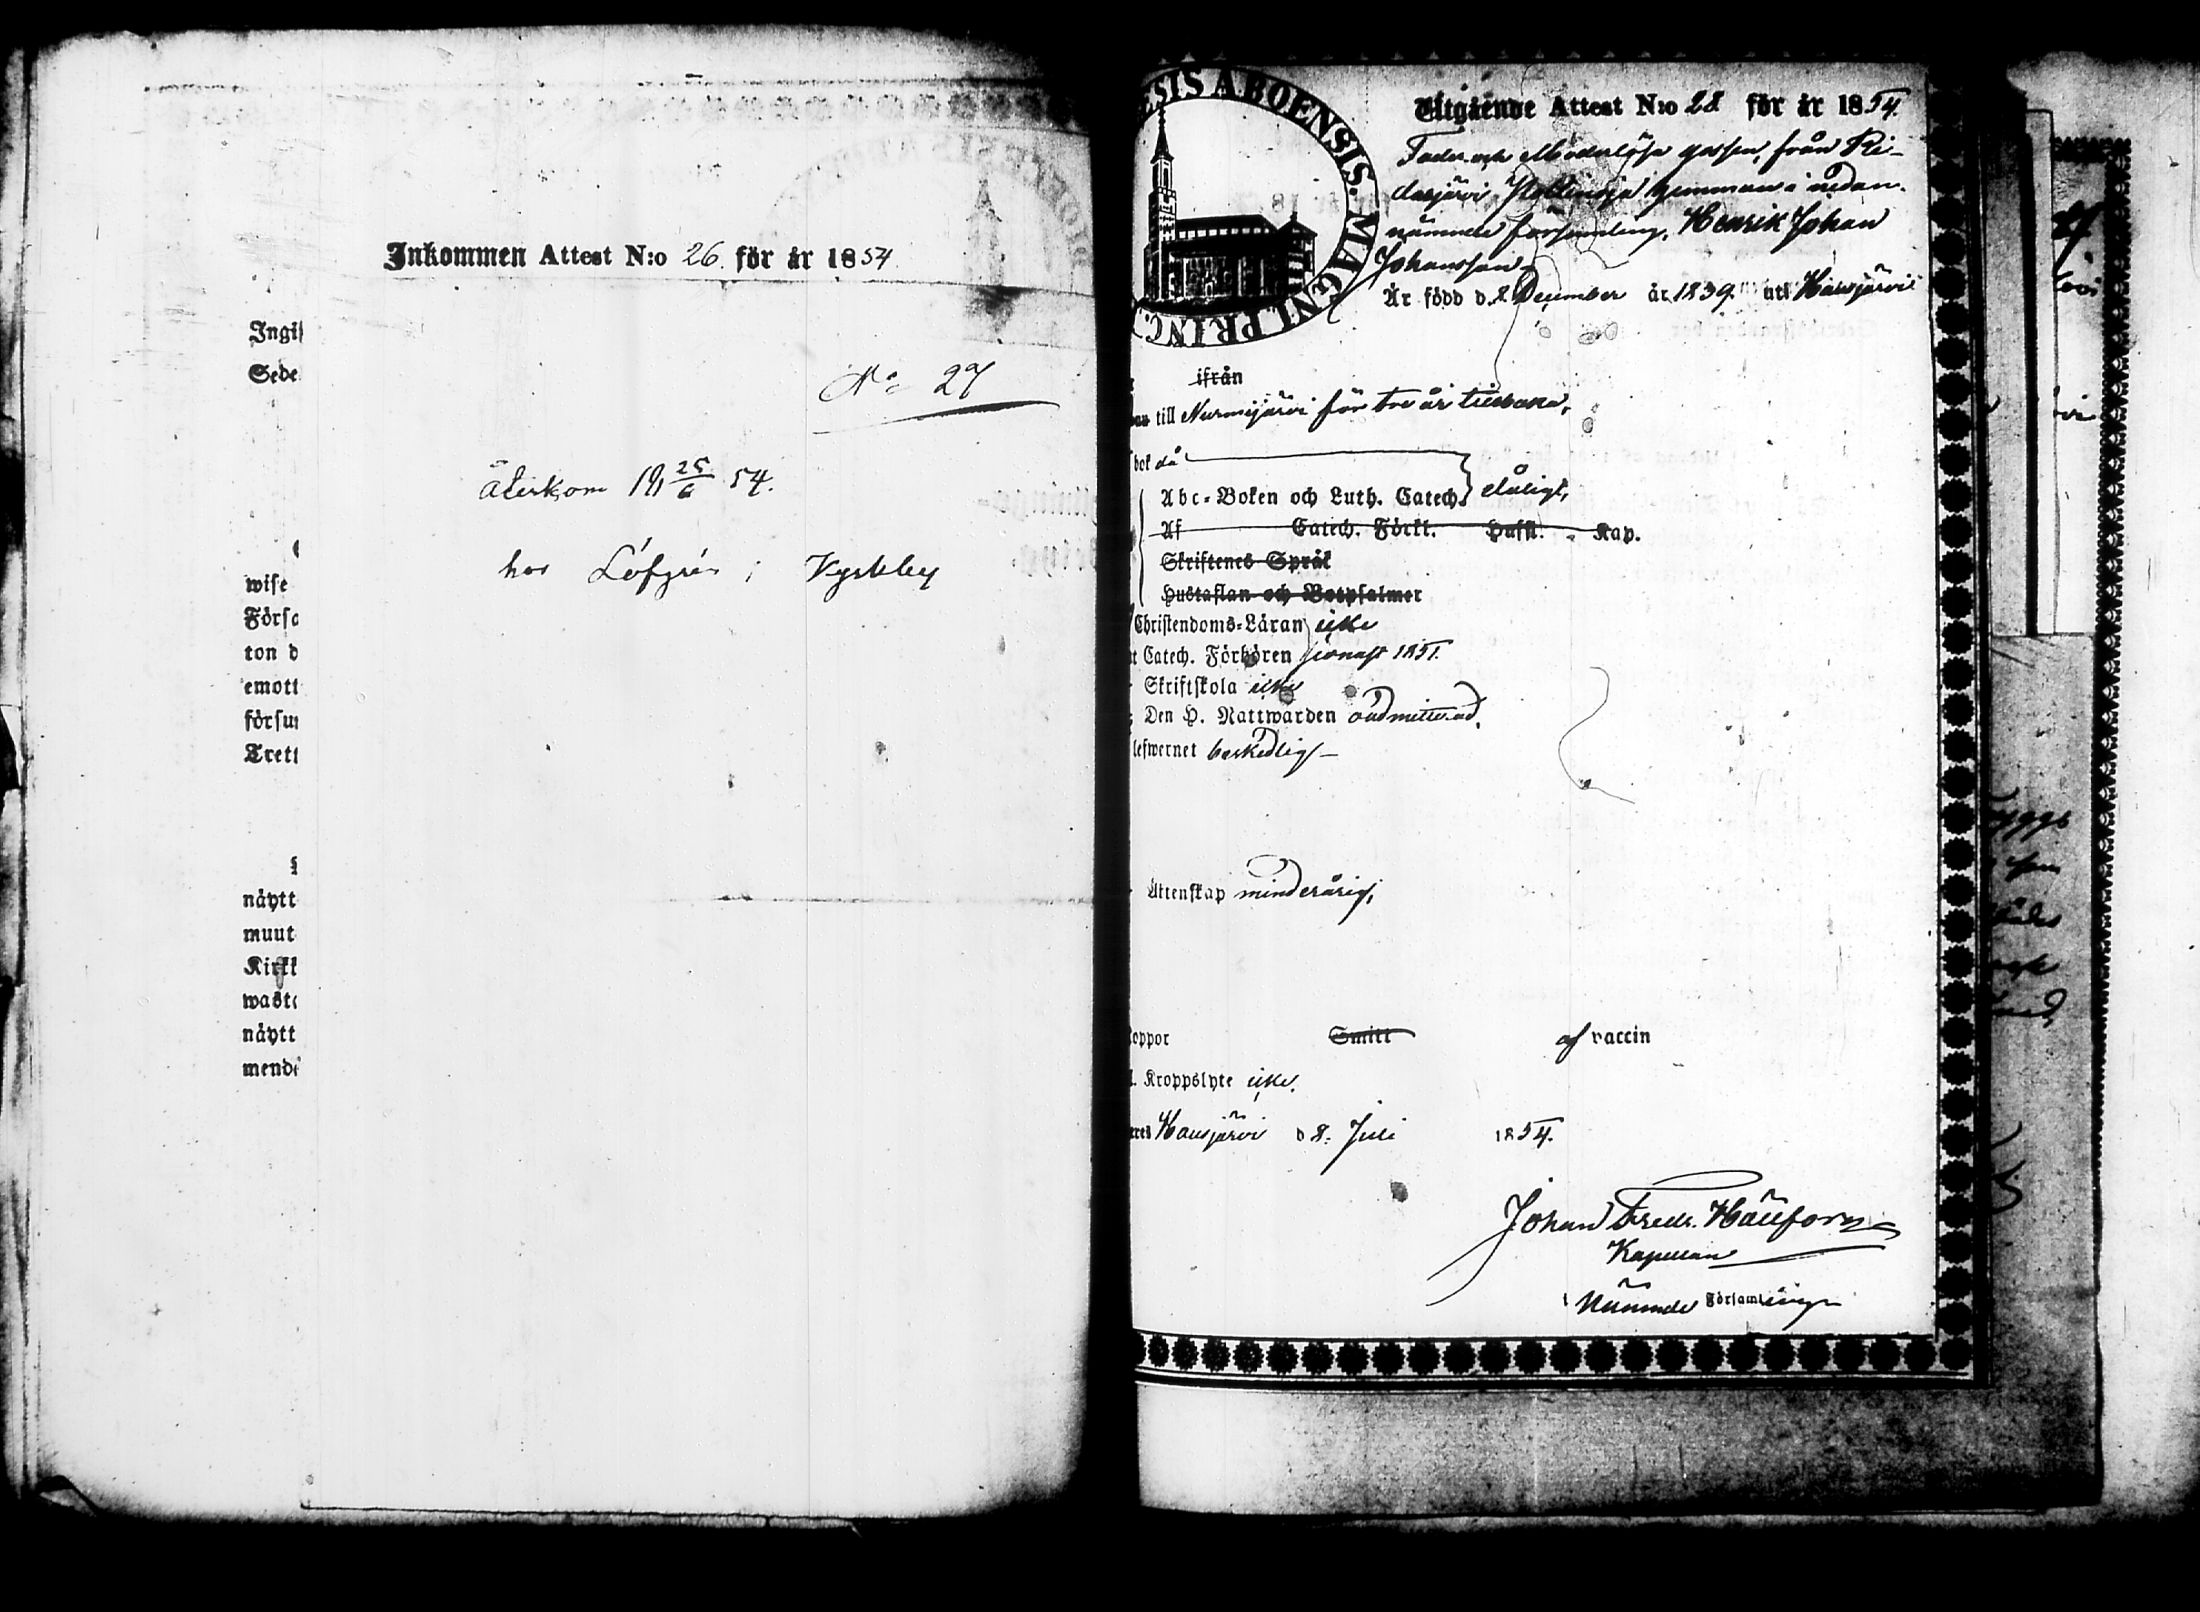 Inkommen Attest N:o 26. för år 1854
No 27
Återkom 19 25/6 54.
hos Löfgrén i Kyrkby
Ingif
Sede
wise
Förs
ton d
emott
försu
Trett
näytt
muut
Kirkk
wast
näytt
mend
ESIS ABOENSIS. MAGNI PRINC.
Utgående Attest N:o 28 för år 1854.
Fader och Moderlösa gossen, från Ri-
dasjärvi hemman i nedan-
nämnde församling, Henrik Johan
Johansson
Är född d. 8 December år 1839. uti Hausjärvi
ifrån
till Nurmijärvi för tre år tillbaka,
bok då
Abc-Boken och Luth. Catech. dåligt,
Af Catech. Förkl. Hufst. Kap.
Skriftenes Språk
Hustaflan och Botpsalmer
Christendoms-Läran icke
Catech. Förhören sednast 1851.
Skriftskola icke
Den H. Nattwarden oadmitterad.
lefwernet beskedlig
Äktenskap minderårig,
oppor Smitt af vaccin
Kroppslyte icke.
Hausjärvi d 8. Juli 1854.
Johan Fredr.
Kapellan
i Nämnde Församling